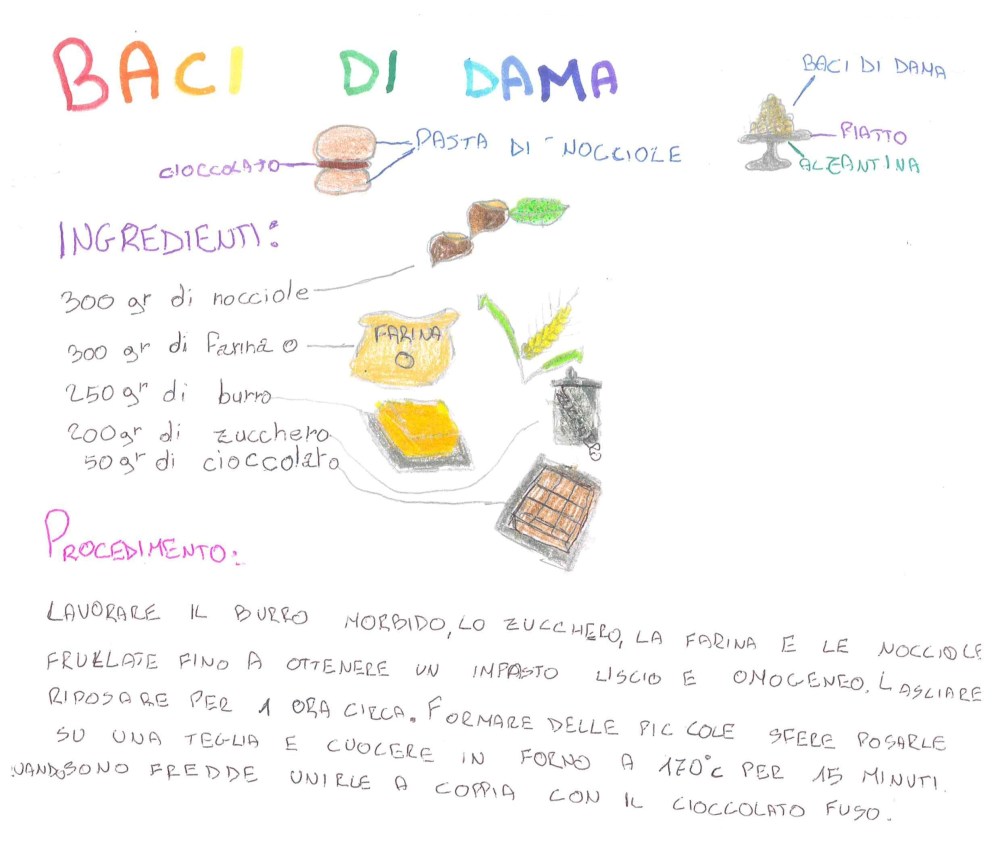 BACI DI DAMA
BACI DI DAMA
PIATTO
ALZANTINA
PASTA DI NOCCIOLE
CIOCCOLATO
INGREDIENTI:
300 gr di nocciole
300 gr di farina 0
FARINA
0
250 gr di burro
200 gr di zucchero
50 gr di cioccolato
PROCEDIMENTO:
LAVORARE IL BURRO MORBIDO, LO ZUCCHERO, LA FARINA E LE NOCCIOLE
FRULLATE FINO A OTTENERE UN IMPASTO LISCIO E OMOGENEO. LASCIARE
RIPOSARE PER 1 ORA CIRCA. FORMARE DELLE PICCOLE SFERE POSARLE
SU UNA TEGLIA E CUOCERE IN FORNO A 170°C PER 15 MINUTI.
QUANDO SONO FREDDE UNIRLE A COPPIA CON IL CIOCCOLATO FUSO.